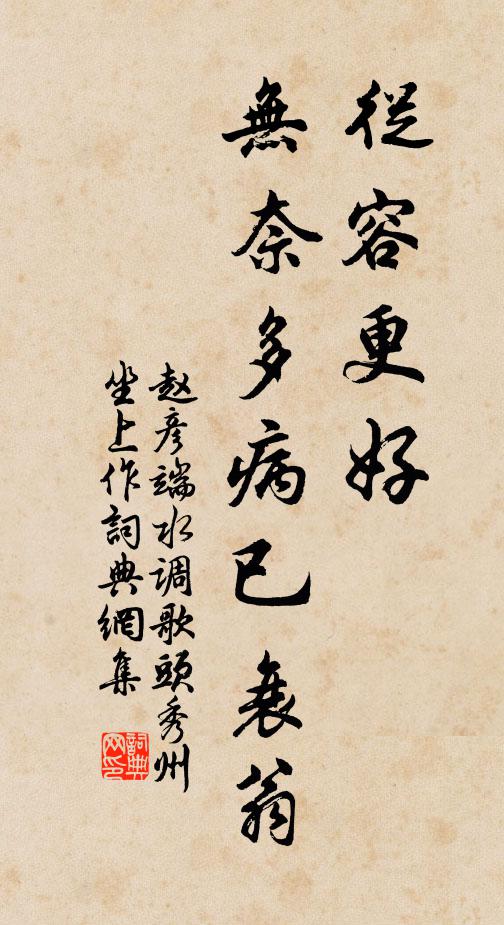 從容更好
無奈多病已衰翁
赵彥端水调歌頭秀州
坐上作詞典網集
詞典
网印